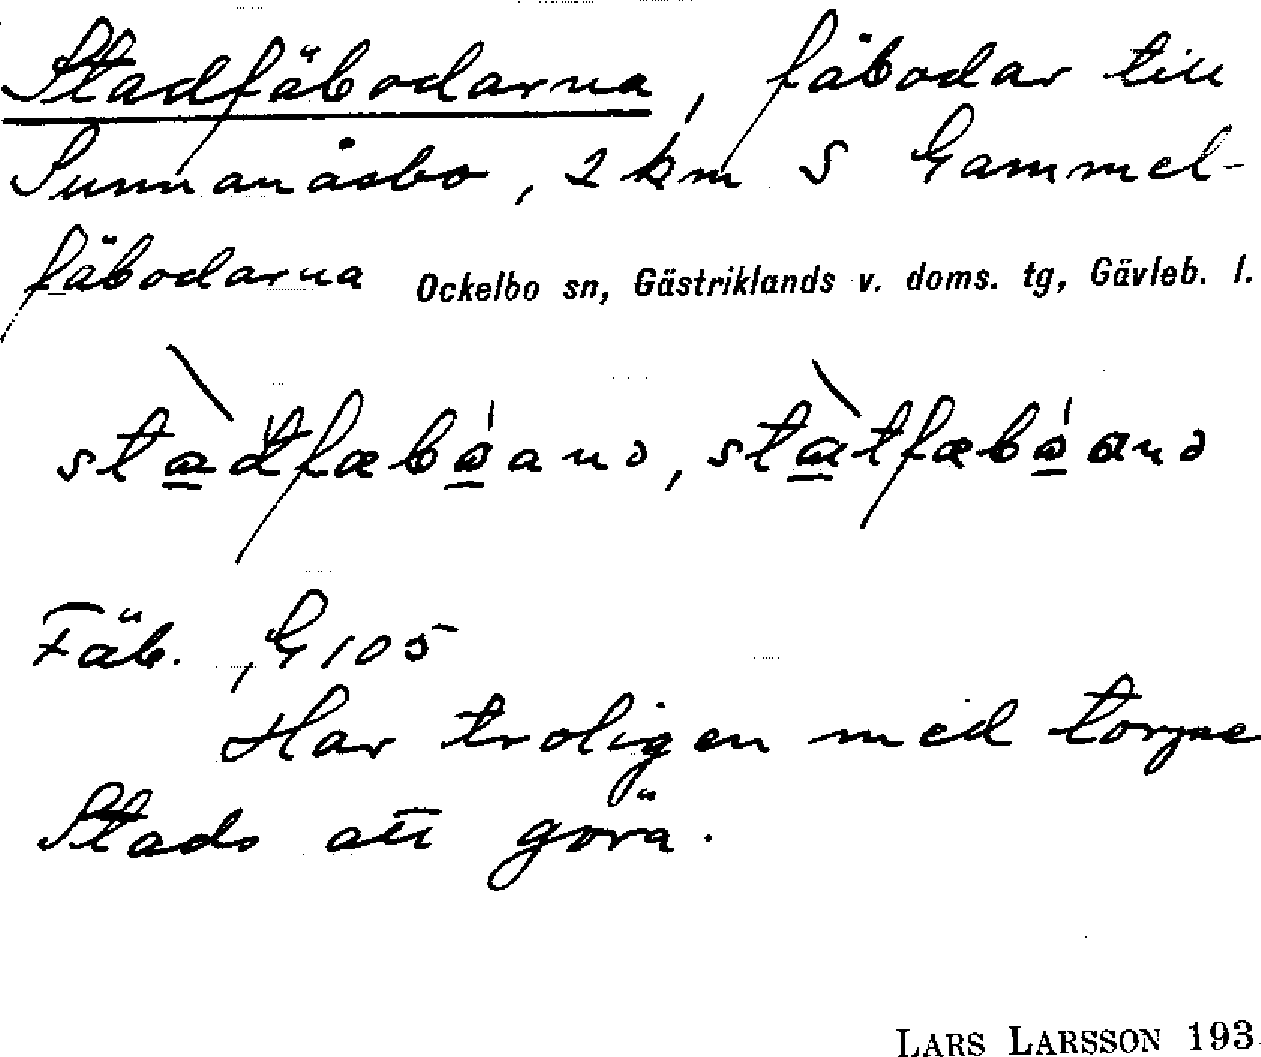 Stadfäbodarna, fäbodar till
Sunnanåsbo, 2 km S Gammel-
fäbodarna Ockelbo sn, Gästriklands v. doms. tg, Gävleb. l.
Fäb. , G 105
Har troligen med torpe
Stads att göra.
LARS LARSSON 193